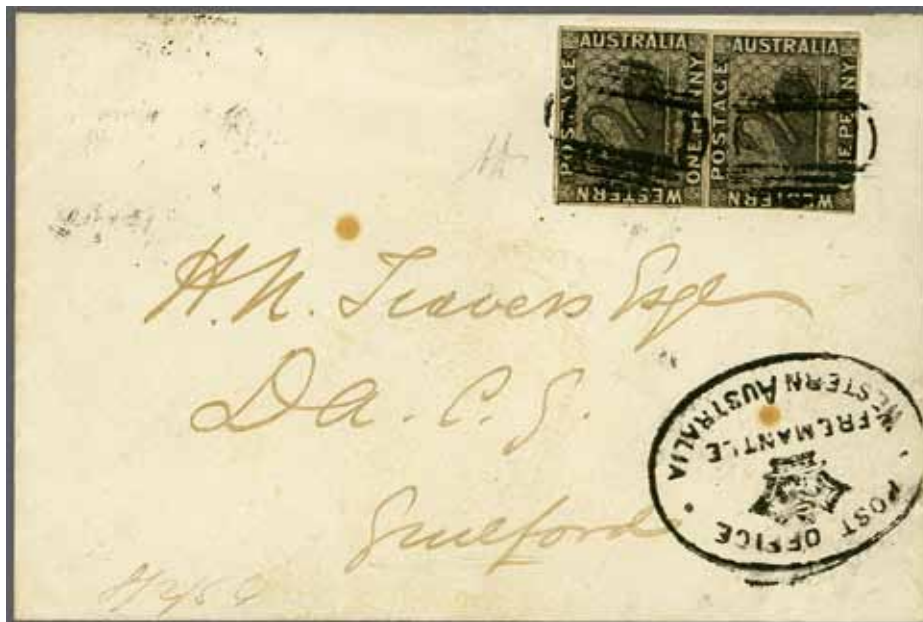 AUSTRALIA
POSTAGE
ONE PENNY
WESTERN
AUSTRALIA
POSTAGE
ONE PENNY
WESTERN
H. N. Travers Esqr
D A. C. G.
Guilford
WESTERN AUSTRALIA
FREMANTLE
POST OFFICE